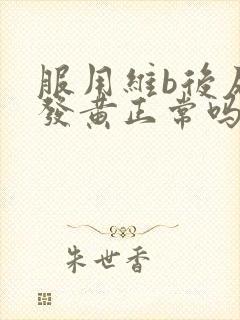 服用維b後尿
發黃正常嗎
朱世香